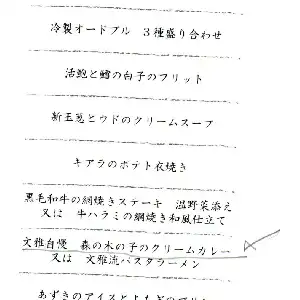 冷製オードブル　３種盛り合わせ
活鮑と鱈の白子のフリット
新玉葱とウドのクリームスープ
キアラのポテト衣焼き
黒毛和牛の網焼きステーキ　温野菜添え
又は　牛ハラミの網焼き和風仕立て
文雅自慢　森の木の子のクリームカレー
又は　文雅流パスタラーメン
あずきのアイスと